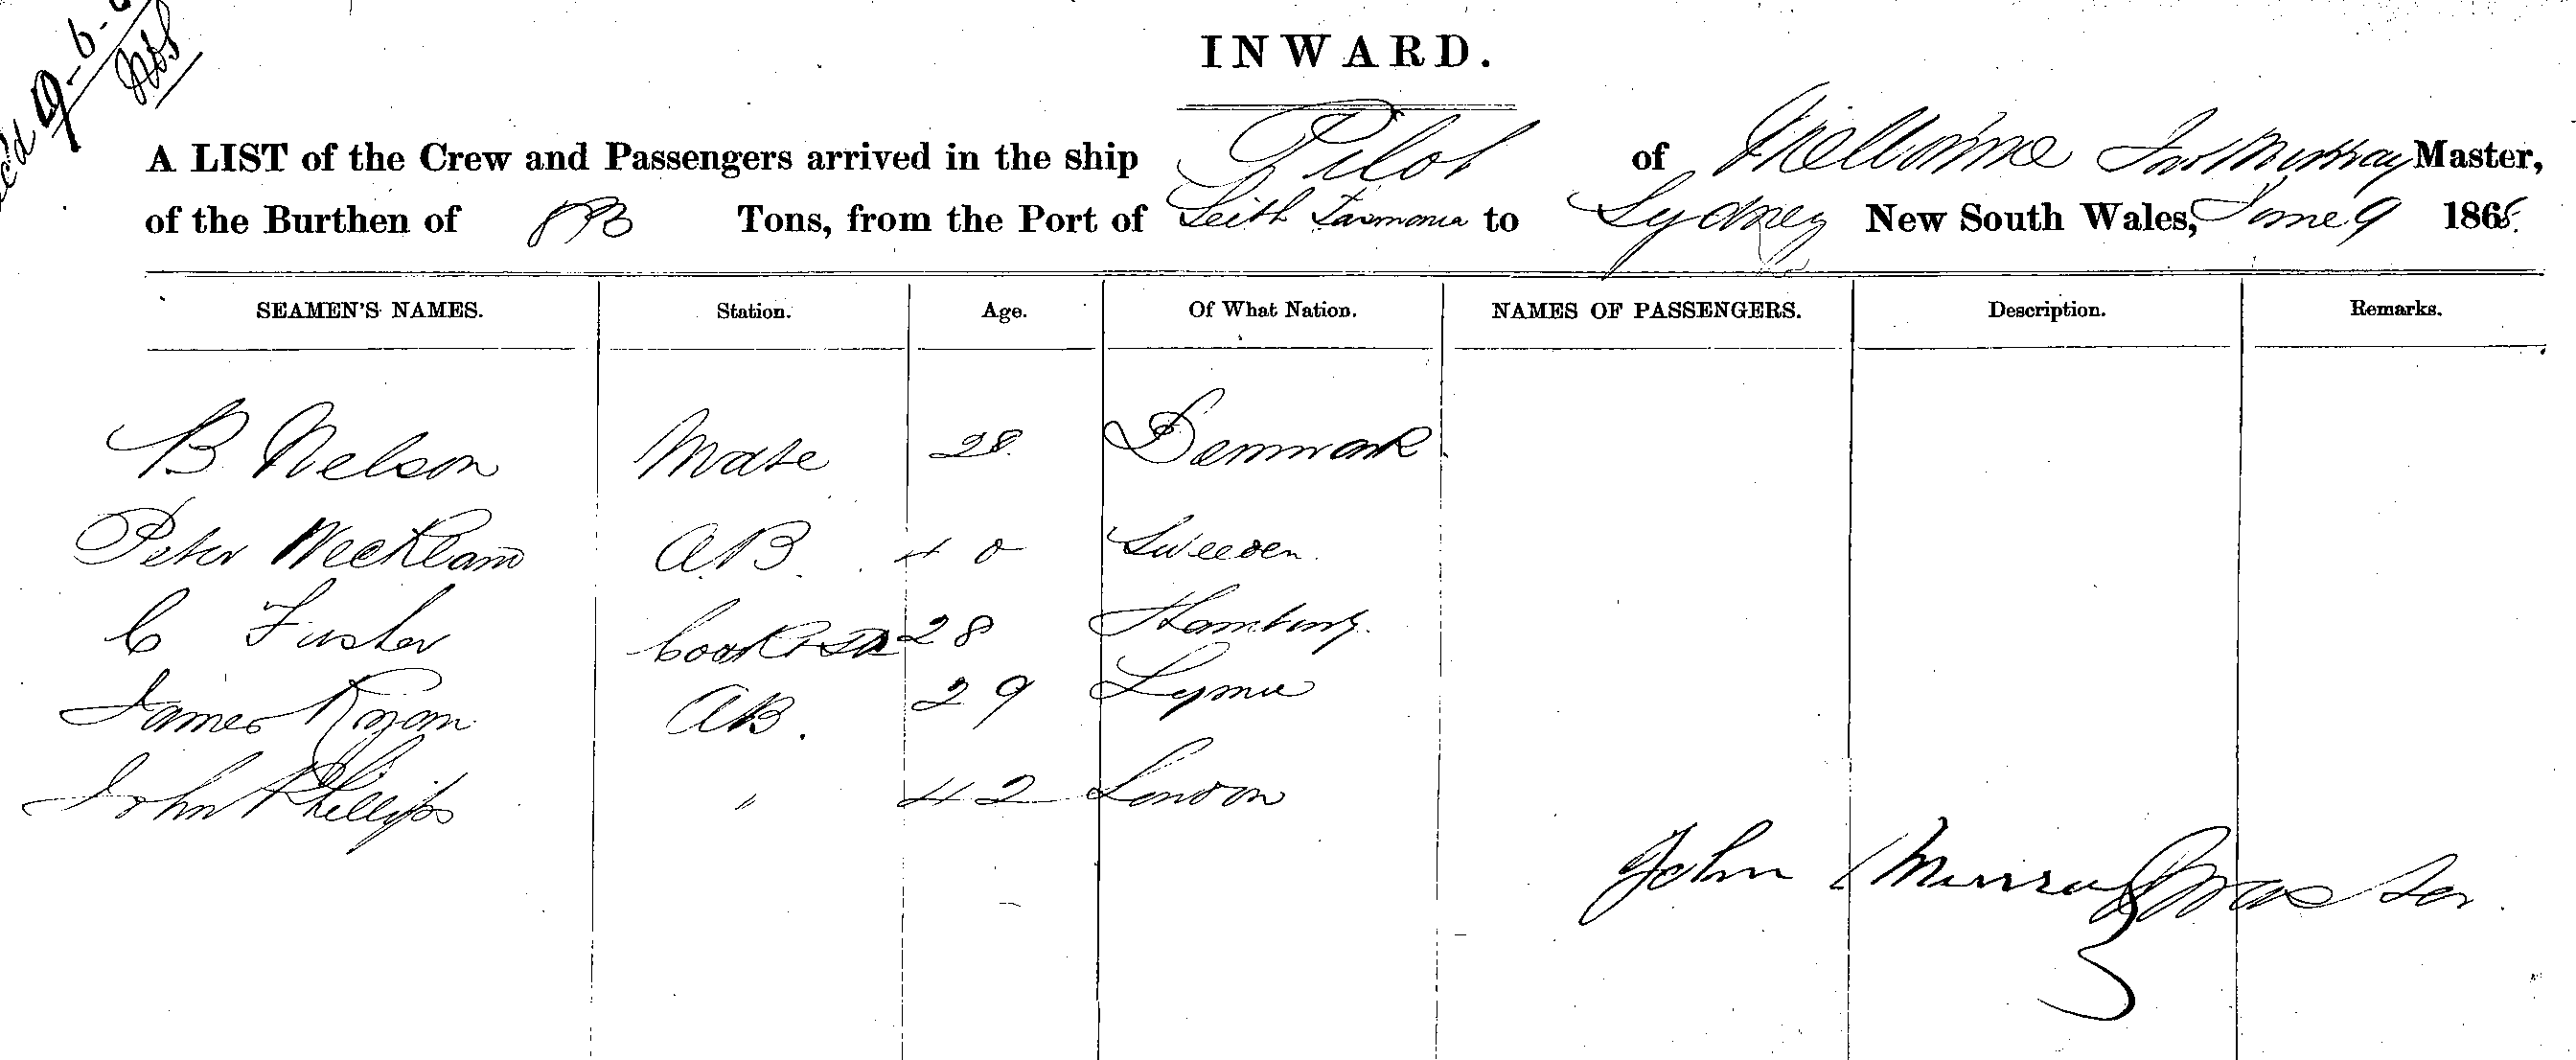 INWARD.
A LIST of the Crew and Passengers arrived in the ship Pilot of Melborne Jno Murray Master,
of the Burthen of Tons, from the Port of Leith Tasmania to Sydney New South Wales, June 9 1868.
SEAMEN'S NAMES. Station. Age. Of What Nation. NAMES OF PASSENGERS. Description. Remarks.
B Nelson Mate 28 Denmark
Peter A.B. 40 Sweeden.
C Cook 28 Hamburg.
James Ryan AB. 29
John Phillips " 42 London
John Murray Master